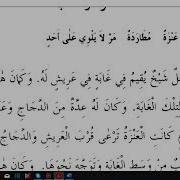 عَنْزَةٌ مُطَارَدَةٌ مَرَّ لَا يَلْوِي عَلَى أَحَدٍ
شَيْخٌ يُقِيمُ فِي غَابَةٍ فِي عَرِيشٍ لَهُ. وَكَانَ
لِتِلْكَ الْغَابَةِ. وَكَانَ لَهُ عَدَدٌ مِنَ الدَّجَاجِ وَعَ
كَانَتِ الْعَنْزَةُ تَرْعَى قُرْبَ الْعَرِيشِ وَالدَّجَاجُ
مِنْ وَسَطِ الْغَابَةِ وَتَوَجَّهَ نَحْوَهَا.